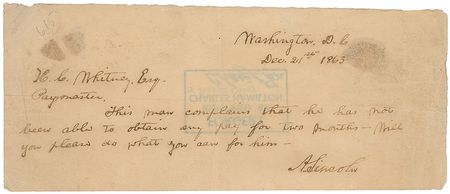 615
Washington, D. C.
Dec. 21st 1863
H. C. Whitney, Esq.
Paymaster,
This man complains that he has not
been able to obtain any pay for two months — Will
you please do what you can for him —
A. Lincoln
CHARLES HAMILTON